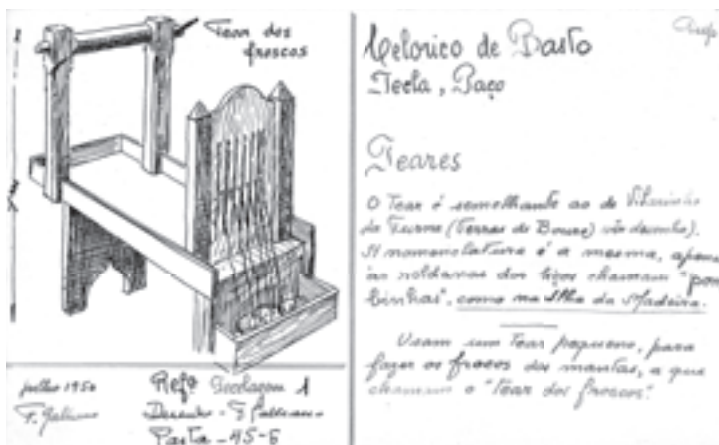 Tear dos
frocos
Julho 1950
Refª Tecelagem 1
Desenho - F. Galhano
Pasta - 45-6
Celorico de Basto
Tecla, Paço
Teares
O Tear é semelhante ao de Vilarinho
da Furna (Terras de Bouro) vêr desenho).
A nomenclatura é a mesma, apenas
as roldanas dos liços chamam "pom
binhas", como na Ilha da Madeira.
Usam um Tear pequeno, para
fazer os frocos das mantas, a que
chamam o "tear dos frocos".